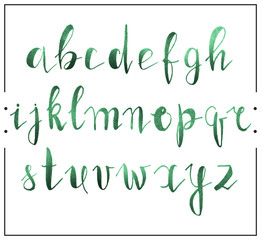 abcdefgh
ijklmnopqr
stuvwxyz